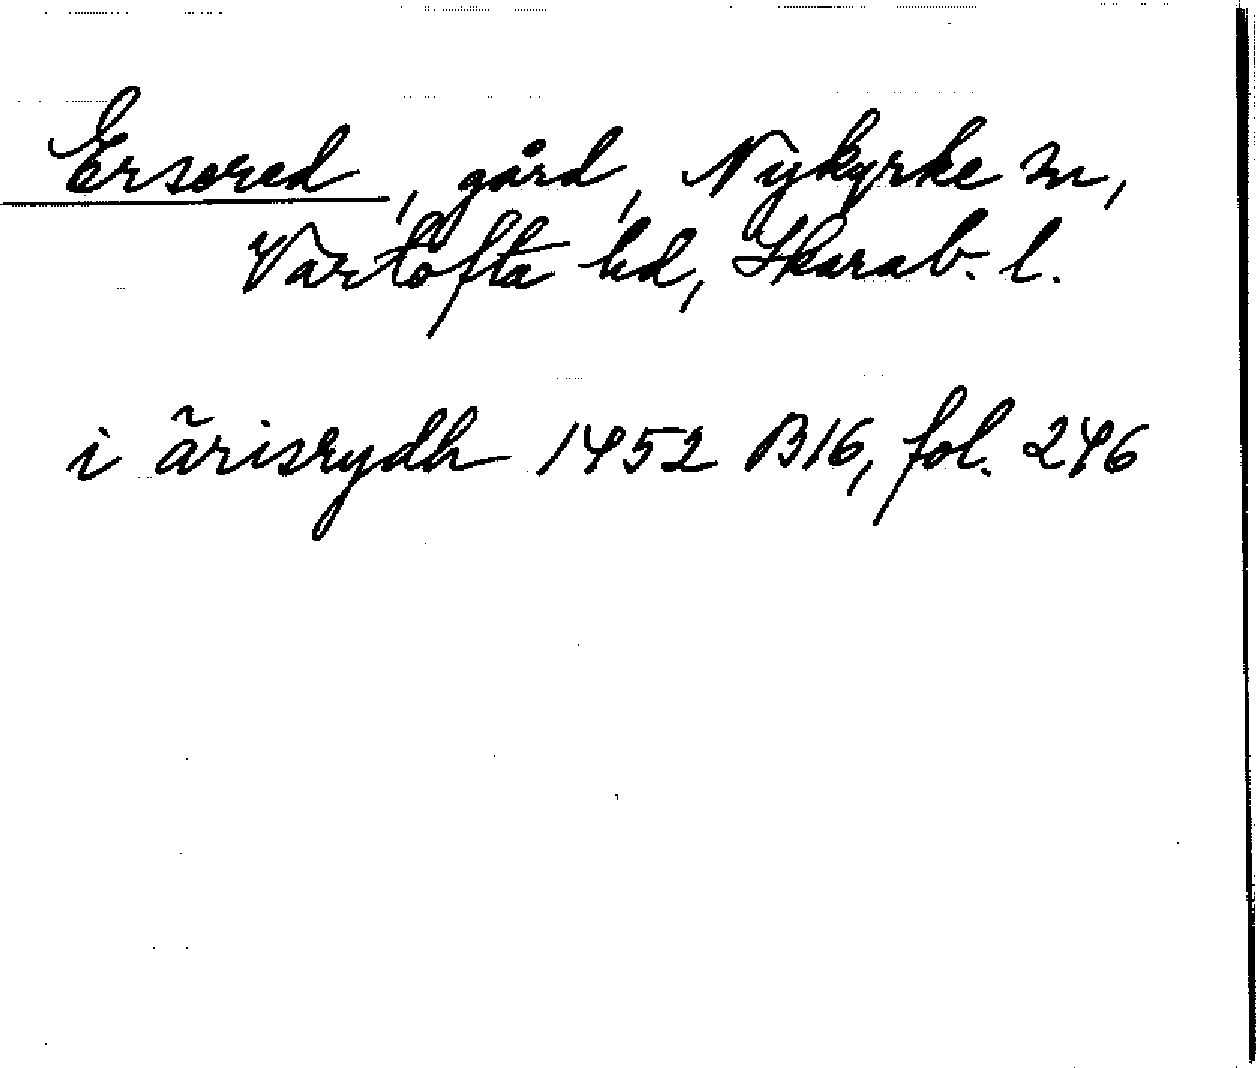 Ersered, gård, Nykyrke sn,
Vartofta hd, Skarab. l.
i ãrisrydh 1452 B16, fol. 246